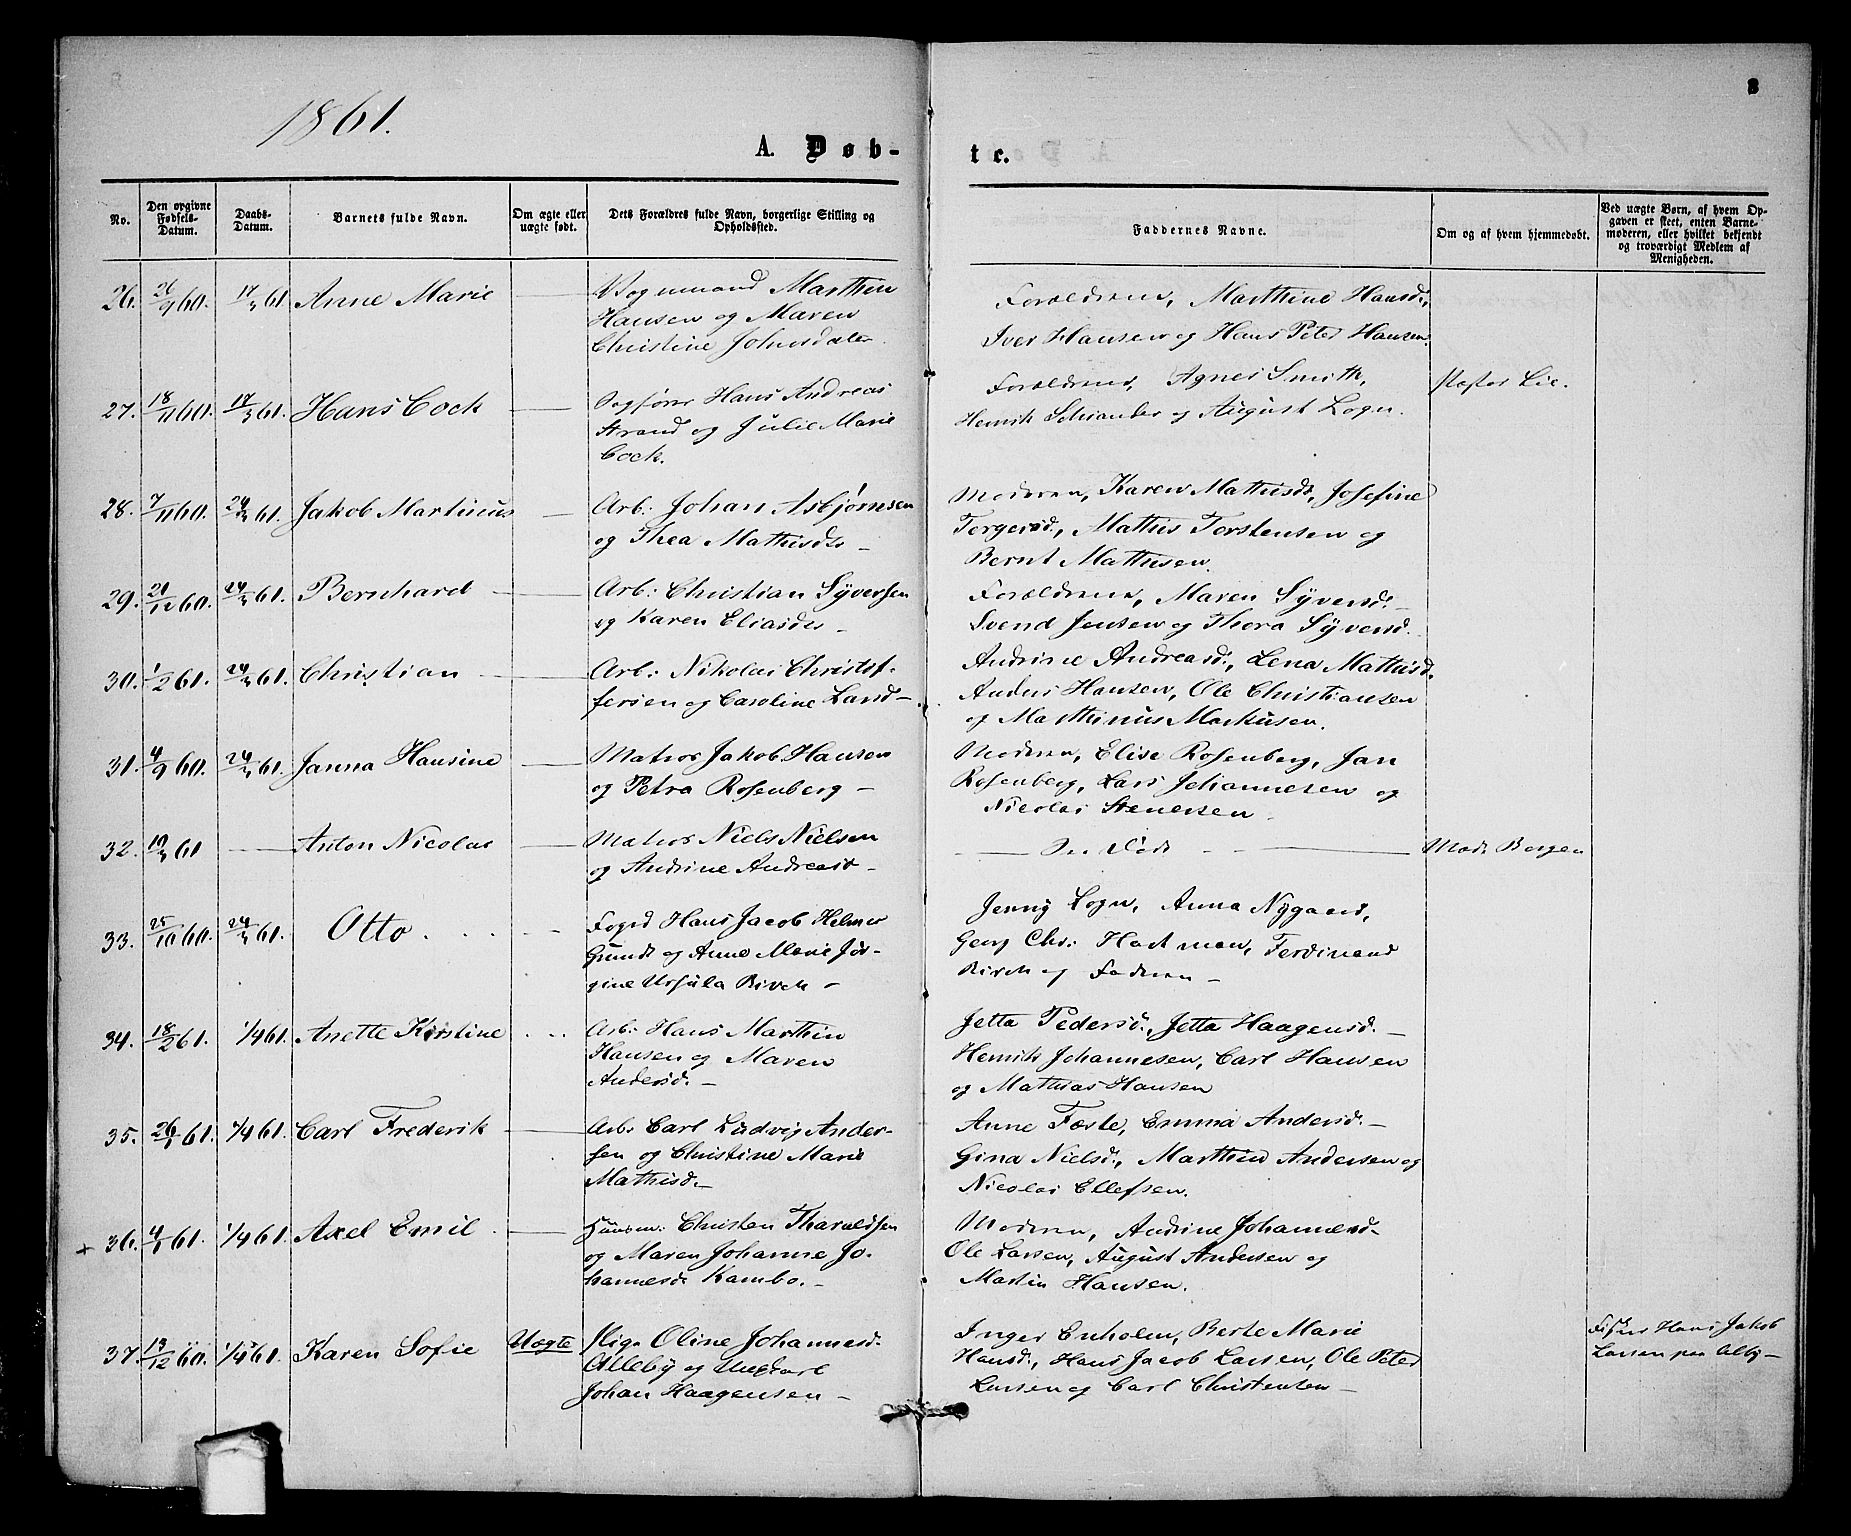 8
1861.
A. Døb-
te.
No.
Den opgivne Fødsels-Datum.
Daabs-Datum.
Barnets fulde Navn.
Om ægte eller uægte født.
Dets Forældres fulde Navn, borgerlige Stilling og Opholdssted.
Faddernes Navne.
Om og af hvem hjemmedøbt.
Ved uægte Børn, af hvem Opgaven er skeet, enten Barnemoderen, eller hvilket bekjendt og troværdigt Medlem af Menigheden.
26. 26/9 60. 17/3 61. Anne Marie — Vognmand Marthin
Hansen og Maren
Christine Johnsdatter.
Forældrene, Marthine Hansd.,
Iver Hansen og Hans Peter Hansen.
27. 18/11 60. 17/3 61. Hans Cock — Sagfører Hans Andreas
Strand og Julie Marie
Cock.
Forældrene, Agnes Smith,
Henrik Schiander og August Logn.
Pastor Lie.
28. 7/11 60. 24/3 61. Jakob Martinus — Arb: Johan Asbjørnsen
og Thea Mathisdtr —
Moderen, Karen Mathisdt, Josefine
Torgersd., Mathis Torstensen og
Bernt Mathisen.
29. 21/12 60. 24/3 61. Bernhard — Arb: Christian Syversen
og Karen Eliasdtr —
Forældrene, Maren Syversd. —
Svend Jensen og Thora Syversd.
30. 1/2 61. 24/3 61. Christian — Arb: Nikolai Christof-
fersen og Caroline Larsd —
Andrine Andreasd., Lena Mathisd.
Anders Hansen, Ole Christiansen
og Marthinus Markusen.
31. 4/9 60. 24/3 61. Janna Hansine — Matros Jakob Hansen
og Petra Rosenberg —
Moderen, Elise Rosenberg, Jan
Rosenberg, Lars Johannesen og
Nicolai Stenersen.
32. 19/3 61 — Anton Nicolai — Matros Niels Nielsen
og Andrine Andreasd —
— Død —
Mad. Borgen
33. 25/10 60. 24/3 61. Otto . . . . Foged Hans Jacob Helmer
Gundt og Anne Marie Jør-
gine Ursula Birch —
Jenny Logn, Anna Nygaard,
Georg Chr: Hartman, Ferdinand
Birch og Faderen —
34. 18/2 61. 1/4 61. Anette Kirstine . . . Arb: Hans Marthin
Hansen og Maren
Andersd. —
Jetta Pedersd., Jetta Haagensd. —
Henrik Johannesen, Carl Hansen
og Mathias Hansen
35. 26/1 61. 1/4 61. Carl Frederik — Arb: Carl Ludvig Ander-
sen og Christine Marie
Mathisd. —
Anne Fæste, Emma Andersd. —
Gina Nielsd., Marthin Andersen og
Nicolai Ellefsen.
+ 36. 4/1 61. 1/4 61. Axel Emil — Huusm: Christen Tharaldsen
og Maren Johanne Jo-
hannesd. Kambo. —
Moderen, Andrine Johannesd. —
Ole Larsen, August Andersen og
Martin Hansen.
37. 13/12 60. 1/4 61. Karen Sofie Uægte Pige Oline Johannesd.
Alleby og Ungkarl
Johan Haagensen —
Inger Enholen, Berte Marie
Hansd., Hans Jacob Larsen, Ole Peter
Larsen og Carl Christensen —
Fisker Hans Jakob
Larsen paa Alby —